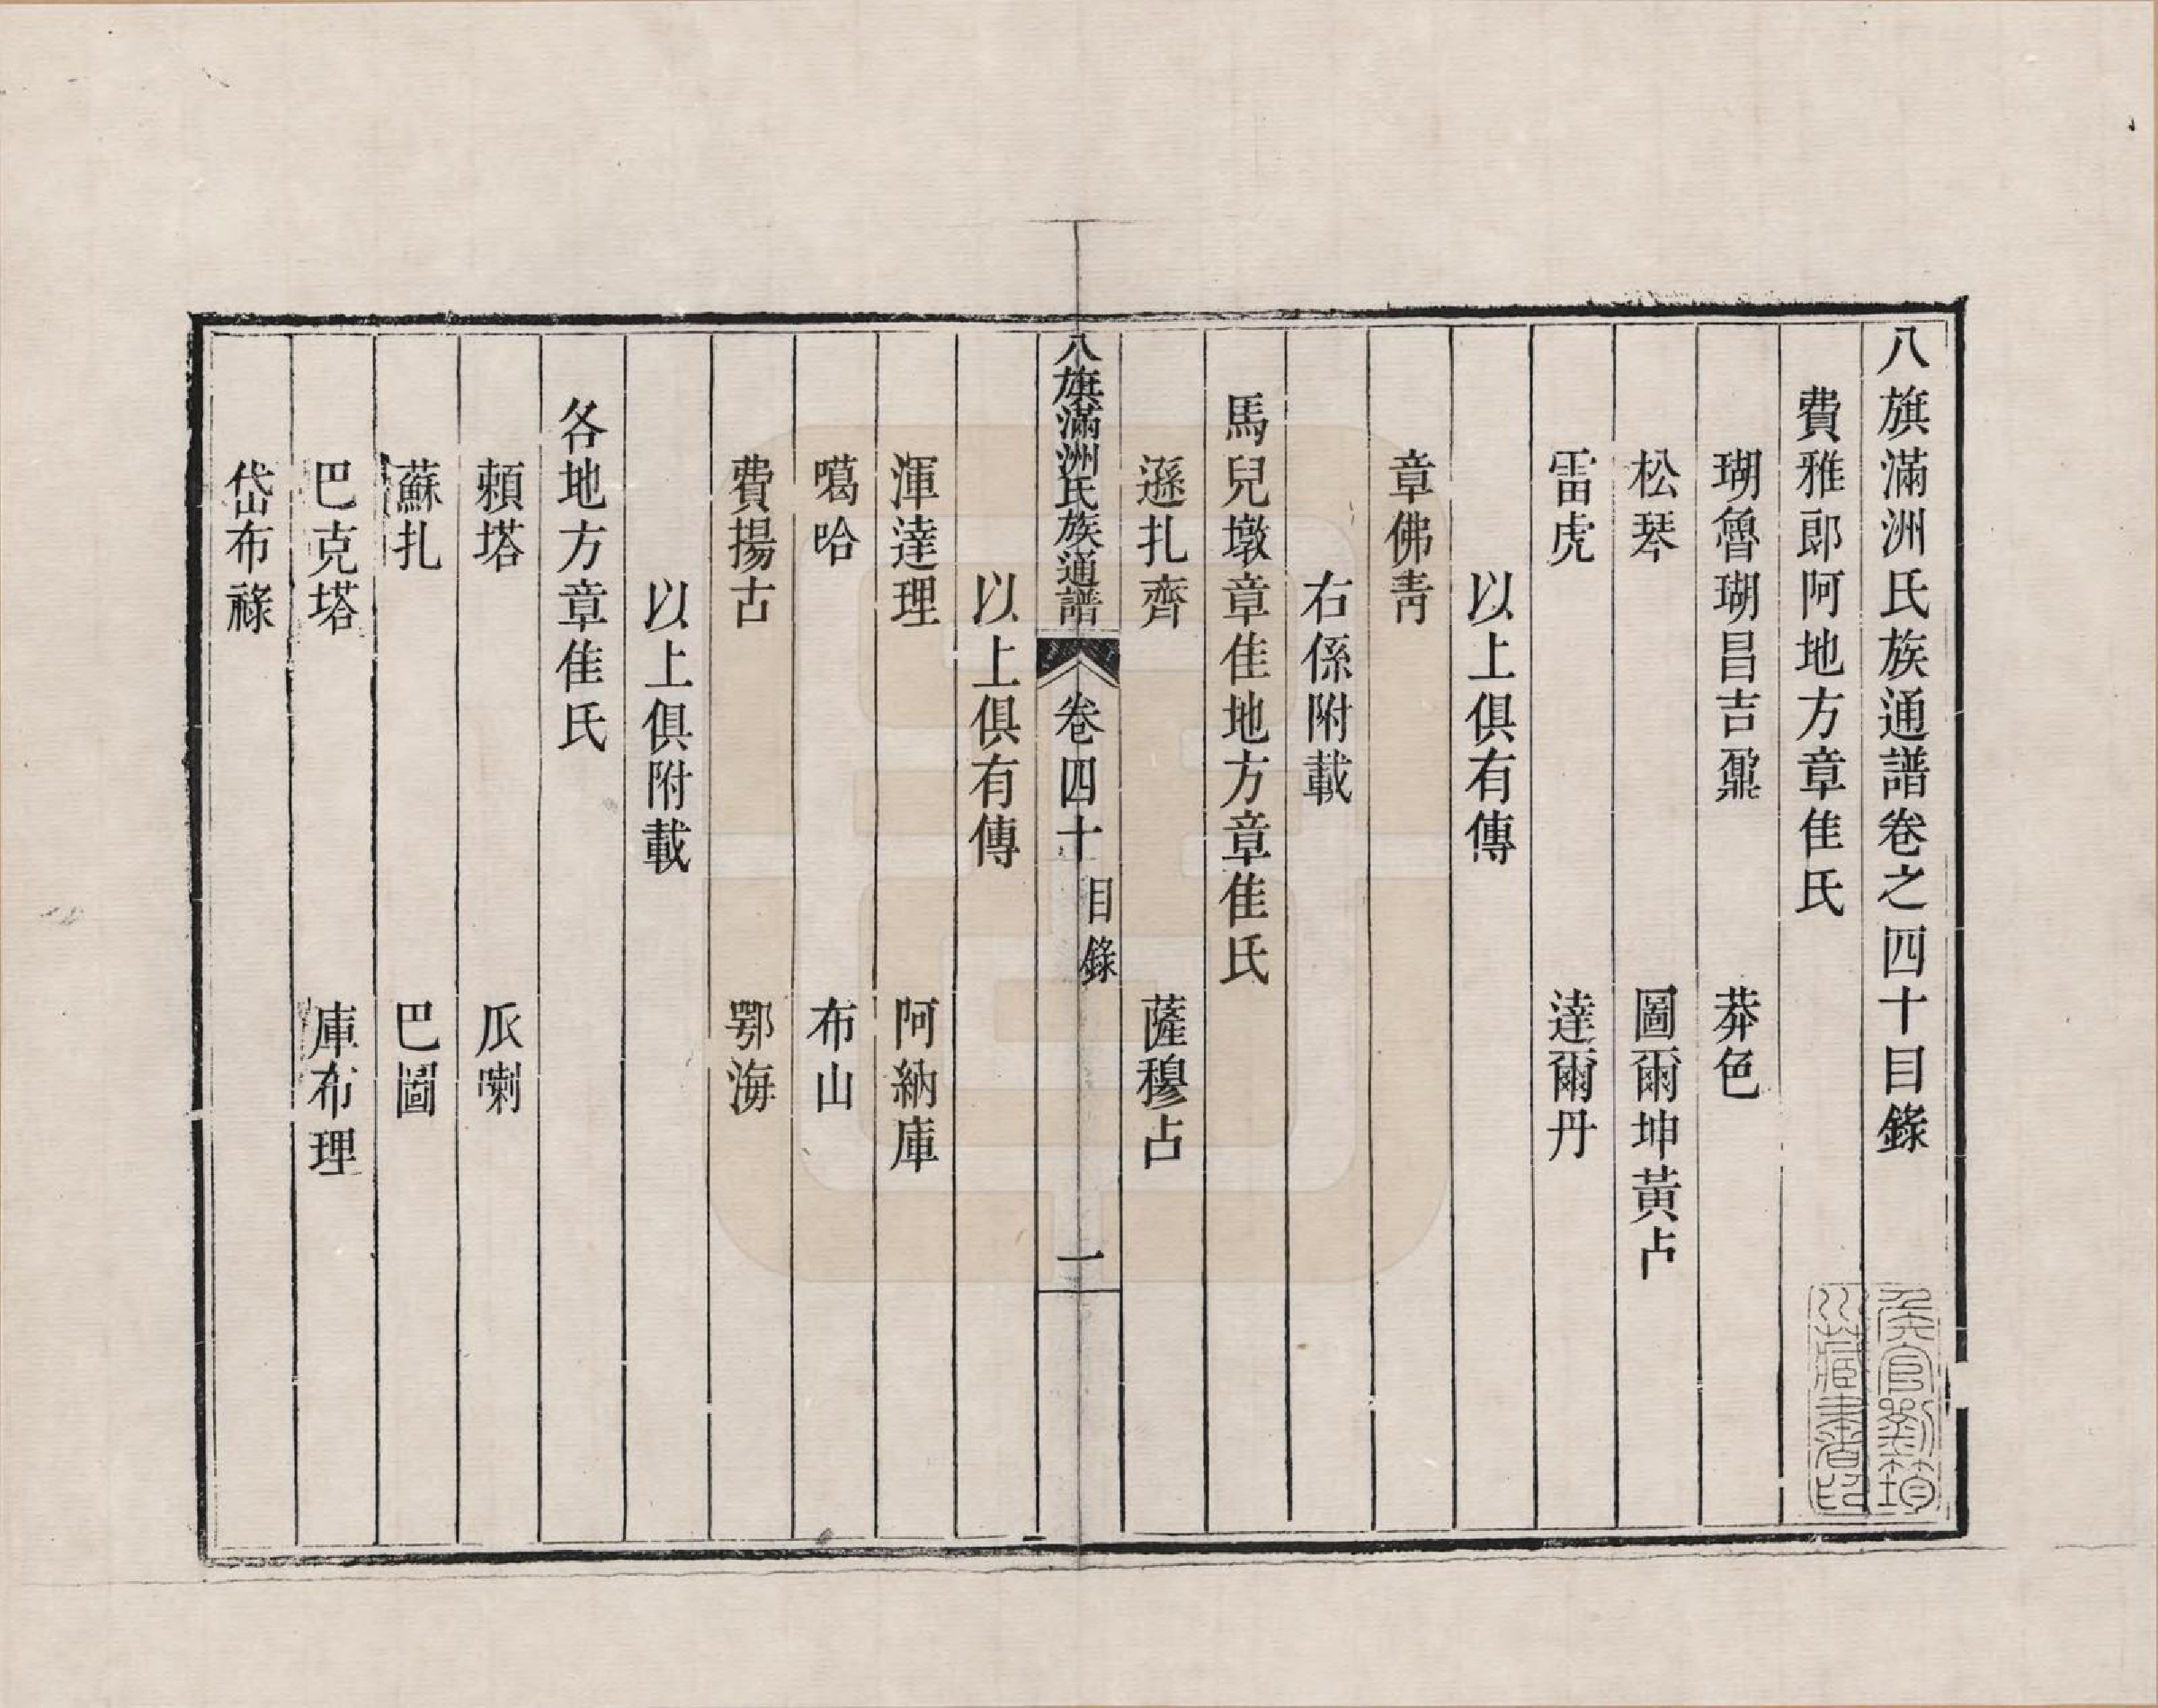 八旗滿洲氏族通譜卷之四十目錄
費雅郎阿地方章佳氏
瑚魯瑚昌吉鼐　莽色
松琴　圖爾坤黃占
雷虎　達爾丹
以上俱有傳
章佛靑
右係附載
馬兒墩章佳地方章佳氏
遜扎齊　薩穆占
八旗滿洲氏族通譜　卷四十　目錄　一
以上俱有傳
渾達理　阿納庫
噶哈　布山
費揚古　鄂海
以上俱附載
各地方章佳氏
頼塔　瓜喇
蘇扎　巴圖
巴克塔　庫布理
岱布祿
侯官劉筠
川藏書印